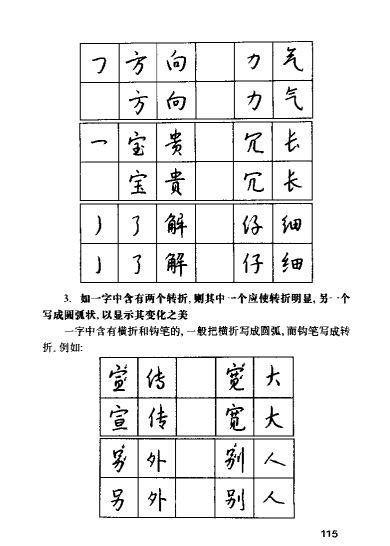 ㇆ 方 向 力 气
方 向 力 气
㇖ 宝 贵 冗 长
宝 贵 冗 长
㇁ 了 解 仔 细
㇁ 了 解 仔 细
3. 如一字中含有两个转折,则其中一个应使转折明显,另一个
写成圆弧状,以显示其变化之美
一字中含有横折和钩笔的,一般把横折写成圆弧,而钩笔写成转
折。例如:
宣 传 宽 大
宣 传 宽 大
另 外 别 人
另 外 别 人
115